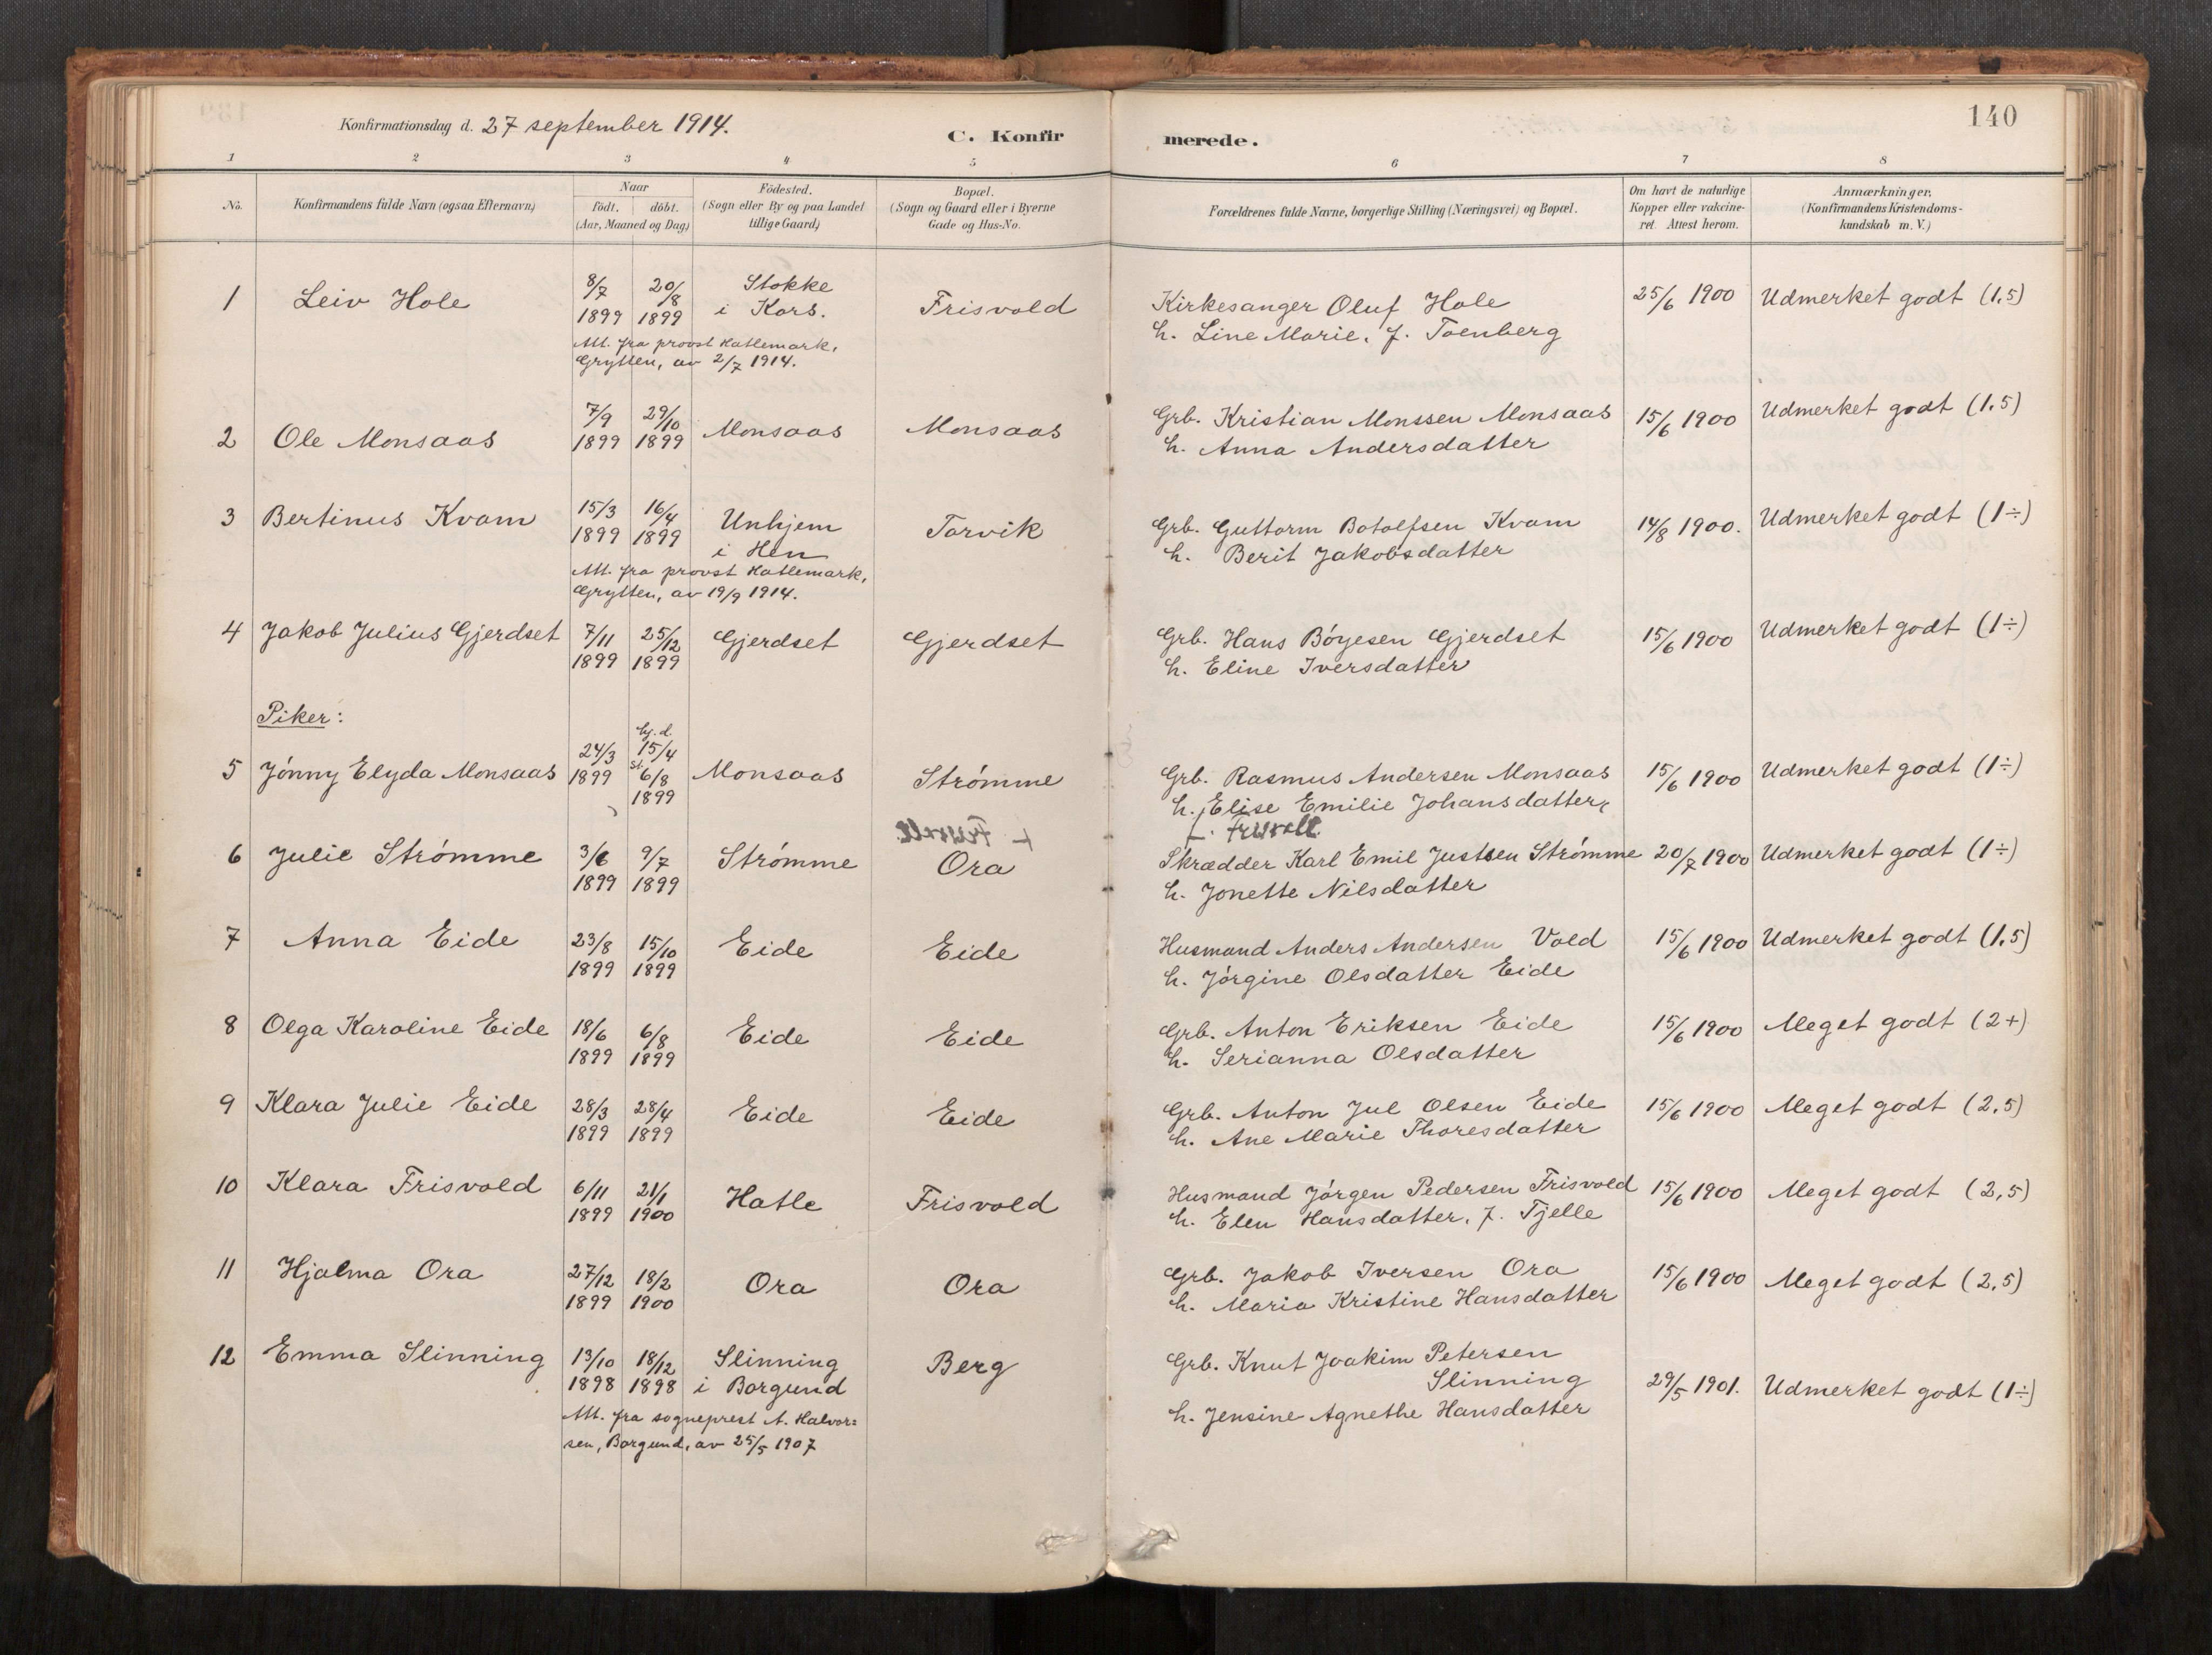 140
Konfirmationsdag d. 27 september 1914.
C. Konfirmerede.
1 2 3 4 5 6 7 8
No.
Konfirmandens fulde Navn (ogsaa Efternavn)
Naar
født. døbt.
(Aar, Maaned og Dag)
Födested.
(Sogn eller By og paa Landet
tillige Gaard)
Bopæl.
(Sogn og Gaard eller i Byerne
Gade og Hus-No.
Forældrenes fulde Navne, borgerlige Stilling (Næringsvei) og Bopæl.
Om havt de naturlige
Kopper eller vakcine-
ret. Attest herom.
Anmærkninger.
(Konfirmandens Kristendoms-
kundskab m. V.)
1 Leiv Hole 8/7 1899 20/8 1899 Stokke
i Kors. Frisvold Kirkesanger Oluf Hole
h. Line Marie, f. Toenberg 25/6 1900 Udmerket godt (1,5)
Att. fra provst Hatlemark,
Grytten, av 2/7 1914.
2 Ole Monsaas 7/9 1899 29/10 1899 Monsaas Monsaas Grb. Kristian Monssen Monsaas
h. Anna Andersdatter 15/6 1900 Udmerket godt (1,5)
3 Bertinus Kvam 15/3 1899 16/4 1899 Unhjem
i Hen Torvik Grb. Guttorm Botolfsen Kvam
h. Berit Jakobsdatter 14/8 1900. Udmerket godt (1÷)
Att. fra provst Hatlemark,
Grytten, av 19/9 1914.
4 Jakob Julius Gjerdset 7/11 1899 25/12 1899 Gjerdset Gjerdset Grb. Hans Böyesen Gjerdset
h. Eline Iversdatter 15/6 1900 Udmerket godt (1÷)
Piker:
5 Jónny Elyda Monsaas 24/3 1899 hj. d. 15/4
st. 6/8 1899 Monsaas Strómme Grb. Rasmus Andersen Monsaas
h. Elise Emilie Johansdatter,
f. Frisvoll. 15/6 1900 Udmerket godt (1÷)
6 Julie Strómme 3/6 1899 9/7 1899 Strómme Ora Skrædder Karl Emil Justsen Strómme
h. Jonette Nilsdatter 20/7 1900 Udmerket godt (1÷)
7 Anna Eide 23/8 1899 15/10 1899 Eide Eide Husmand Anders Andersen Vold
h. Jórgine Olsdatter Eide 15/6 1900 Udmerket godt (1,5)
8 Olga Karoline Eide 18/6 1899 6/8 1899 Eide Eide Grb. Anton Eriksen Eide
h. Serianna Olsdatter 15/6 1900 Meget godt (2+)
9 Klara Julie Eide 28/3 1899 28/4 1899 Eide Eide Grb. Anton Jul Olsen Eide
h. Ane Marie Thoresdatter 15/6 1900 Meget godt (2,5)
10 Klara Frisvold 6/11 1899 21/1 1900 Hatle Frisvold Husmand Jórgen Pedersen Frisvold
h. Elen Hansdatter, f. Tjelle 15/6 1900 Meget godt (2,5)
11 Hjalma Ora 27/12 1899 18/2 1900 Ora Ora Grb. Jakob Iversen Ora
h. Maria Kristine Hansdatter 15/6 1900 Meget godt (2,5)
12 Emma Slinning 13/10 1898 18/12 1898 Slinning
i Borgund Berg Grb. Knut Joakim Petersen
Slinning
h. Jensine Agnethe Hansdatter 29/5 1901. Udmerket godt (1÷)
Att. fra sogneprest A. Halvor=
sen, Borgund, av 25/5 1907